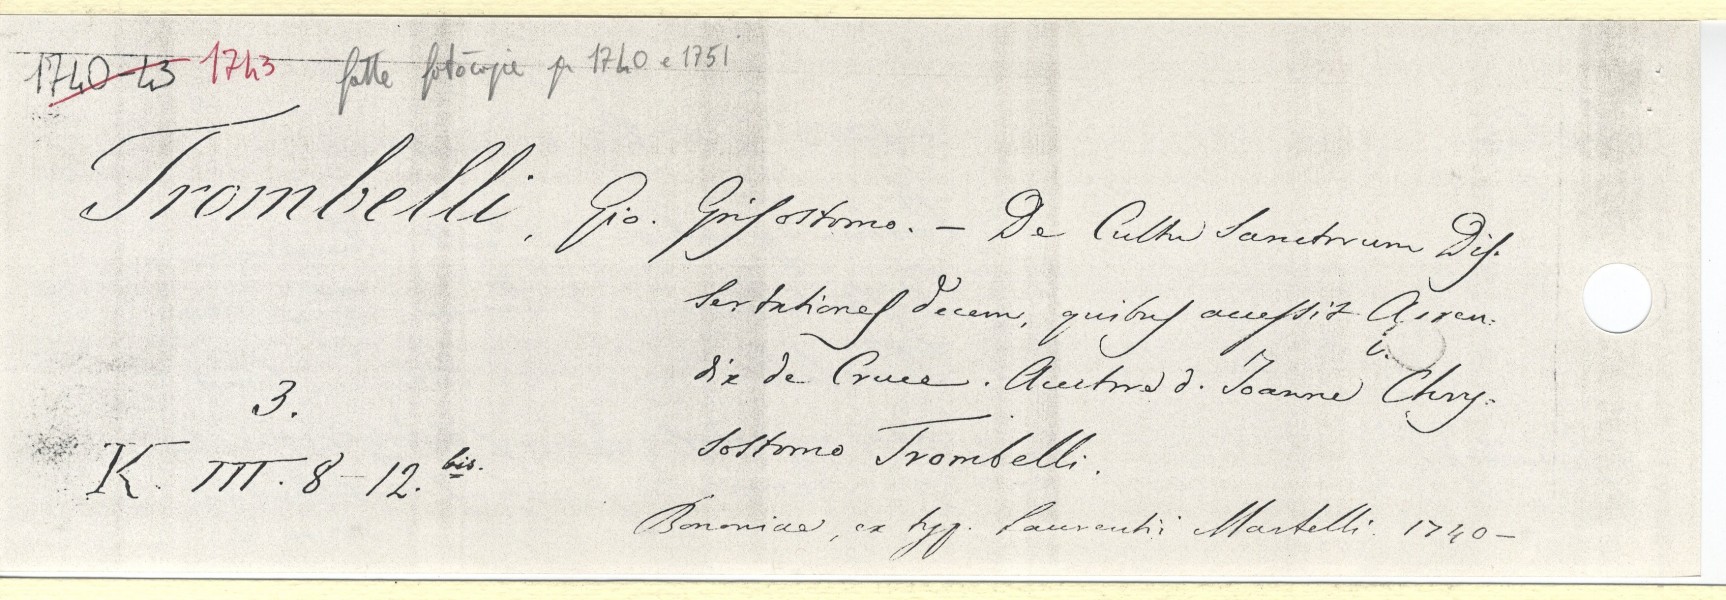 1740-43 1743 fatte fotocopie per 1740 e 1751
Trombelli, Gio. Grisostomo. – De Cultu Sanctorum Dis-
sertationes decem, quibus accessit Appen-
dix de Cruce. Auctore d. Joanne Chry-
sostomo Trombelli.
3.
K. III. 8-12. bis.
Bononiae, ex typ. Laurentii Martelli. 1740-